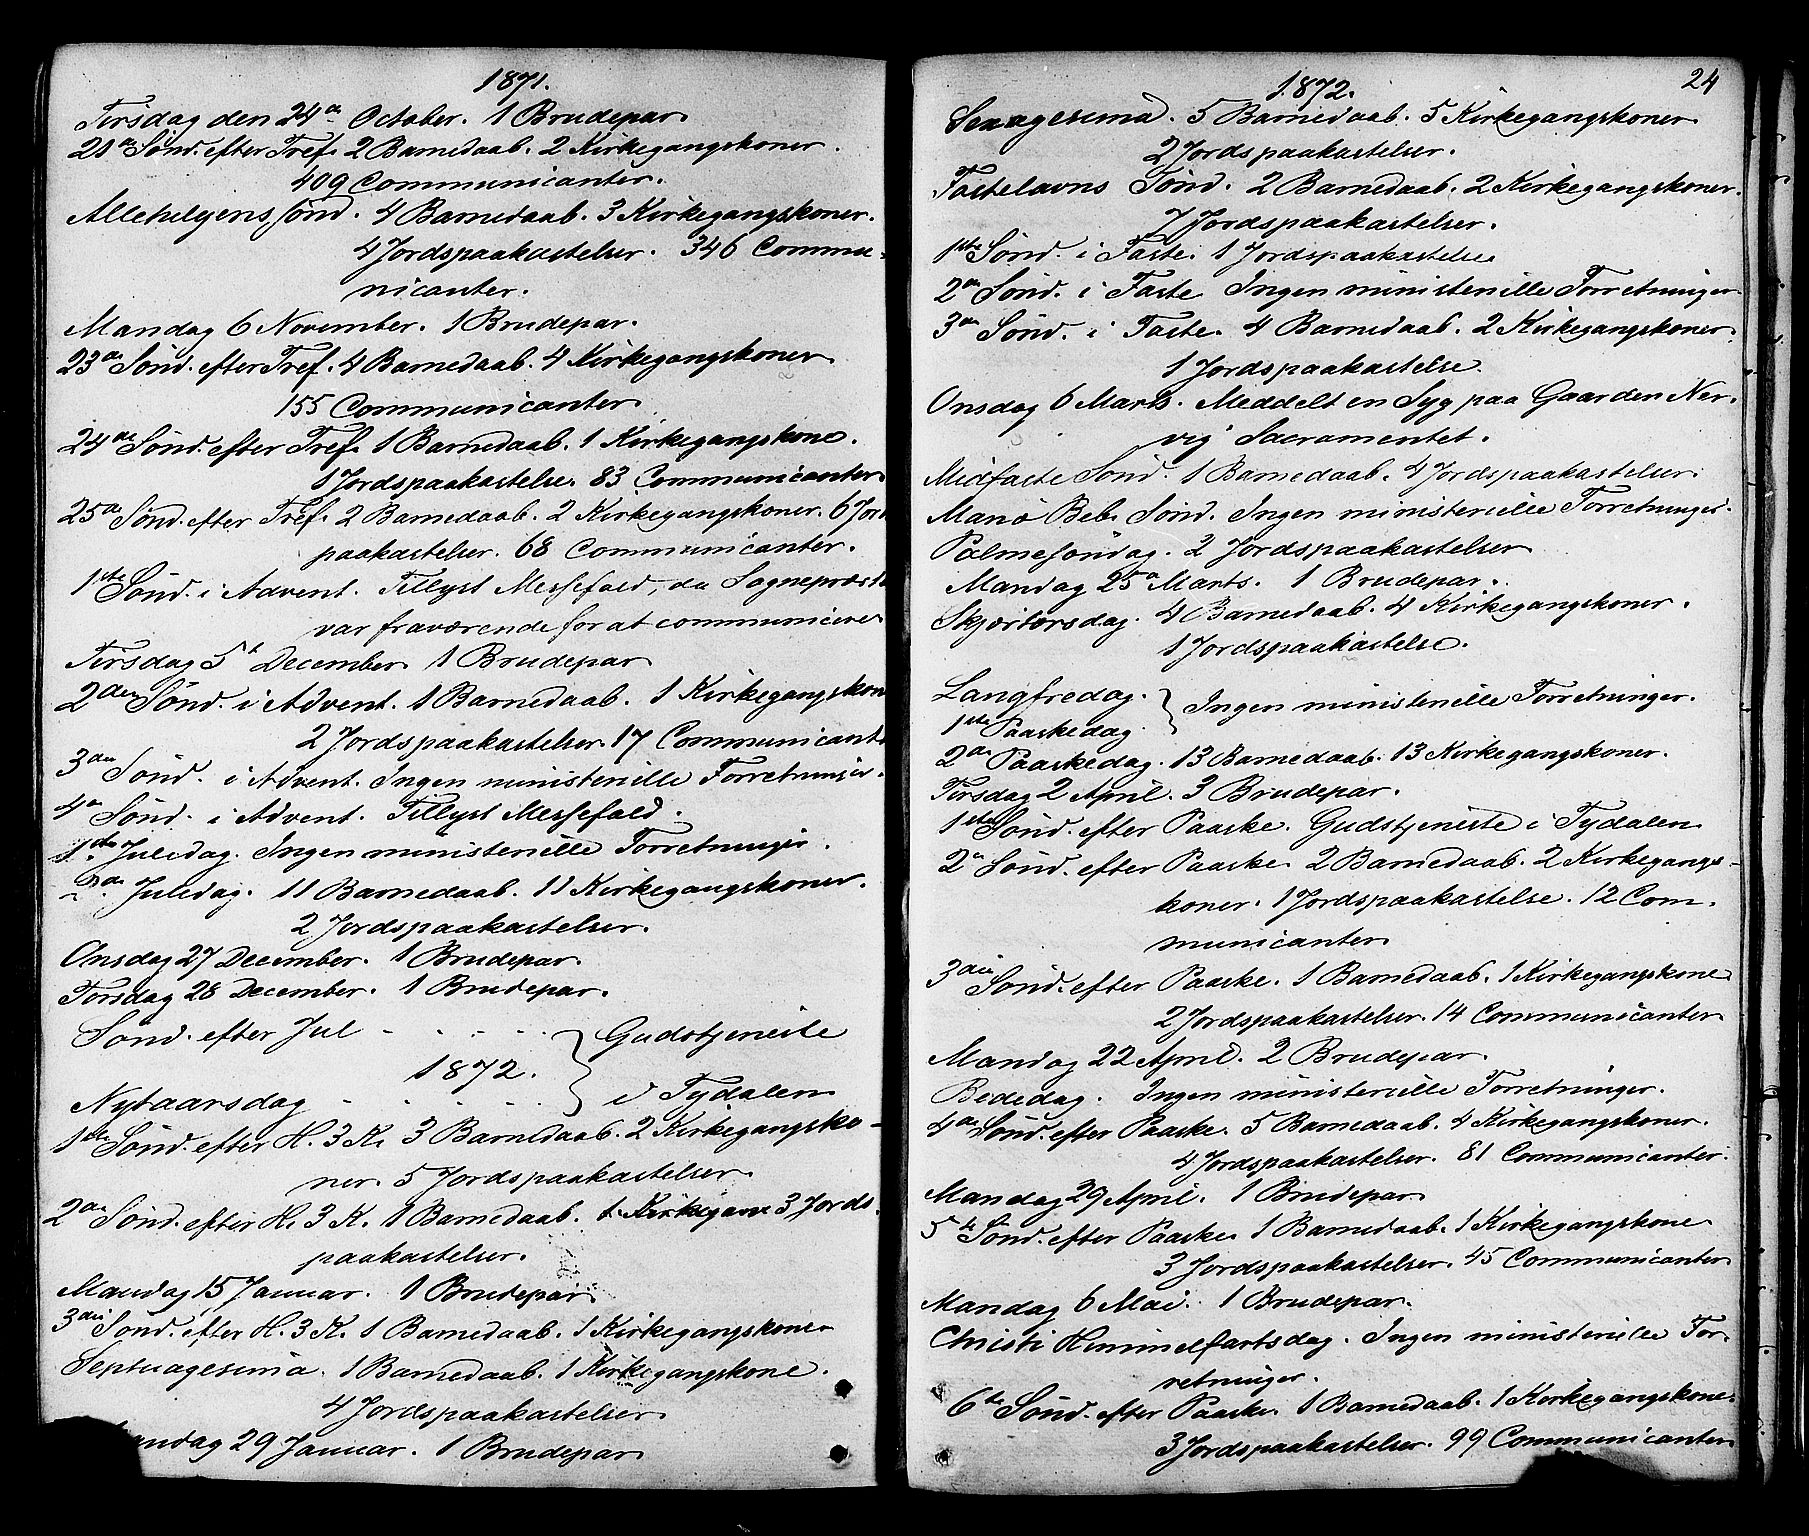 1871.
Tirsdag den 24de October. 1 Brudepar.
21de Sønd. efter Tref. 2 Barnedaab. 2 Kirkegangskoner.
409 Communicanter.
Allehelgens sønd. 4 Barnedaab. 3 Kirkegangskoner.
4 Jordspaakastelser. 346 Commu-
nicanter.
Mandag 6 November. 1 Brudepar.
23de Sønd. efter Tref. 4 Barnedaab. 4 Kirkegangskoner
155 Communicanter.
24de Sønd. efter Tref. 1 Barnedaab. 1 Kirkegangskone.
1 Jordspaakastelse. 83 Communicanter
25de Sønd. efter Tref. 2 Barnedaab. 2 Kirkegangskoner. 6 Jord
paakastelser. 68 Communicanter.
1ste Sønd. i Advent. Tillyst Messefald, da Sognepræst
var fraværende for at communicere
Tirsdag 5t December 1 Brudepar
2den Sønd. i Advent. 1 Barnedaab. 1 Kirkegangskon
2 Jordspaakastelser. 17 Communicant
3die Sønd. i Advent. Ingen ministerielle Forretninger.
4de Sønd. i Advent. Tillyst Messefald.
1ste Juledag. Ingen ministerielle Forretninger.
2de Juledag. 11 Barnedaab. 11 Kirkegangskoner.
2 Jordspaakastelser.
Onsdag 27 December. 1 Brudepar.
Torsdag 28 December. 1 Brudepar.
Sønd. efter Jul - - - - - Gudstjeneste
1872.
Nytaarsdag - - - - - i Tydalen
1ste Sønd. efter H. 3 K. 3 Barnedaab. 2 Kirkegangsko-
ner. 5 Jordspaakastelser.
2de Sønd. efter H. 3 K. 1 Barnedaab. 1 Kirkegan 3 Jords-
paakastelser.
Mandag 15 Januar. 1 Brudepar.
3die Sønd. efter H. 3 K. 1 Barnedaab. 1 Kirkegangskone
Septuagesima. 1 Barnedaab. 1 Kirkegangskone.
4 Jordspaakastelser.
andag 29 Januar. 1 Brudepar.
1872.
24
Sexagesima. 5 Barnedaab. 5 Kirkegangskoner
2 Jordspaakastelser.
Fastelavns Sønd. 2 Barnedaab. 2 Kirkegangskoner.
7 Jordspaakastelser.
1ste Sønd. i Faste. 1 Jordspaakastelse
2den Sønd. i Faste Ingen ministerielle Forretninger
3die Sønd. i Faste. 4 Barnedaab. 2 Kirkegangskoner.
1 Jordspaakastelse.
Onsdag 6 Marts. Meddelt en Syg paa Gaarden Ner-
vig Sacramentet.
Midfaste Sønd. 1 Barnedaab. 4 Jordspaakastelser.
Mariø Beb. Sønd. Ingen ministerielle Forretninger.
Palmesøndag. 2 Jordspaakastelser
Mandag 25de Marts. 1 Brudepar.
Skjærtorsdag. 4 Barnedaab. 4 Kirkegangskoner.
1 Jordspaakastelse.
Langfredag. Ingen ministerielle Forretninger.
1ste Paaskedag.
2de Paaskedag. 13 Barnedaab. 13 Kirkegangskoner.
Tirsdag 2 April. 3 Brudepar.
1ste Sønd. efter Paaske. Gudstjeneste i Tydalen
2de Sønd. efter Paaske. 2 Barnedaab. 2 Kirkegangs-
koner. 1 Jordspaakastelse. 12 Com-
municanter
3die Sønd. efter Paaske. 1 Barnedaab. 1 Kirkegangskone
2 Jordspaakastelser. 14 Communicanter
Mandag 22 April. 2 Brudepar.
Bededag. Ingen ministerielle Forretninger.
4de Sønd. efter Paaske. 5 Barnedaab. 4 Kirkegangskoner.
4 Jordspaakastelser. 81 Communicanter.
Mandag 29 April. 1 Brudepar.
5te Sønd. efter Paaske. 1 Barnedaab. 1 Kirkegangskone
3 Jordspaakastelser. 45 Communicanter
Mandag 6 Mai. 1 Brudepar.
Christi Himmelfartsdag. Ingen ministerielle For-
retninger.
6te Sønd. efter Paaske. 1 Barnedaab. 1 Kirkegangskone.
3 Jordspaakastelser. 99 Communicanter